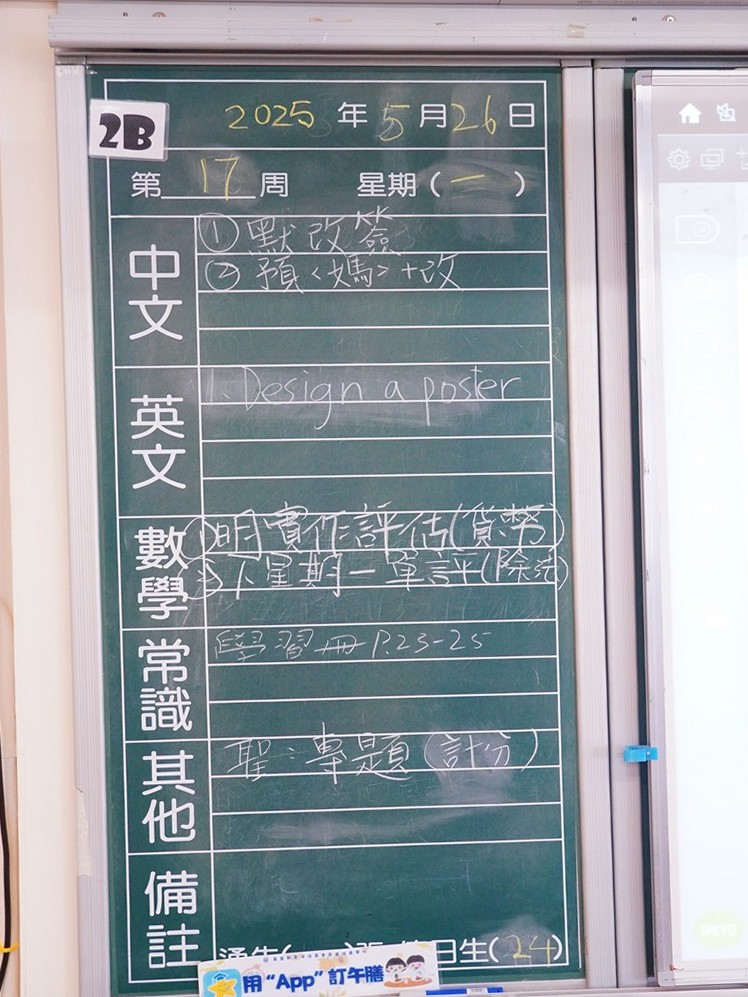 2B
2025 年 5 月 26 日
第 17 周 星期 ( 一 )
中文
① 默改簽
② 預<媽>+改
英文
1. Design a poster
數學
① 明實作評估(貨幣)
② 下星期一單評(除法)
常識
學習冊 P.23-25
其他
聖：專題(計分)
備註
日生(24)
用“App”訂午膳